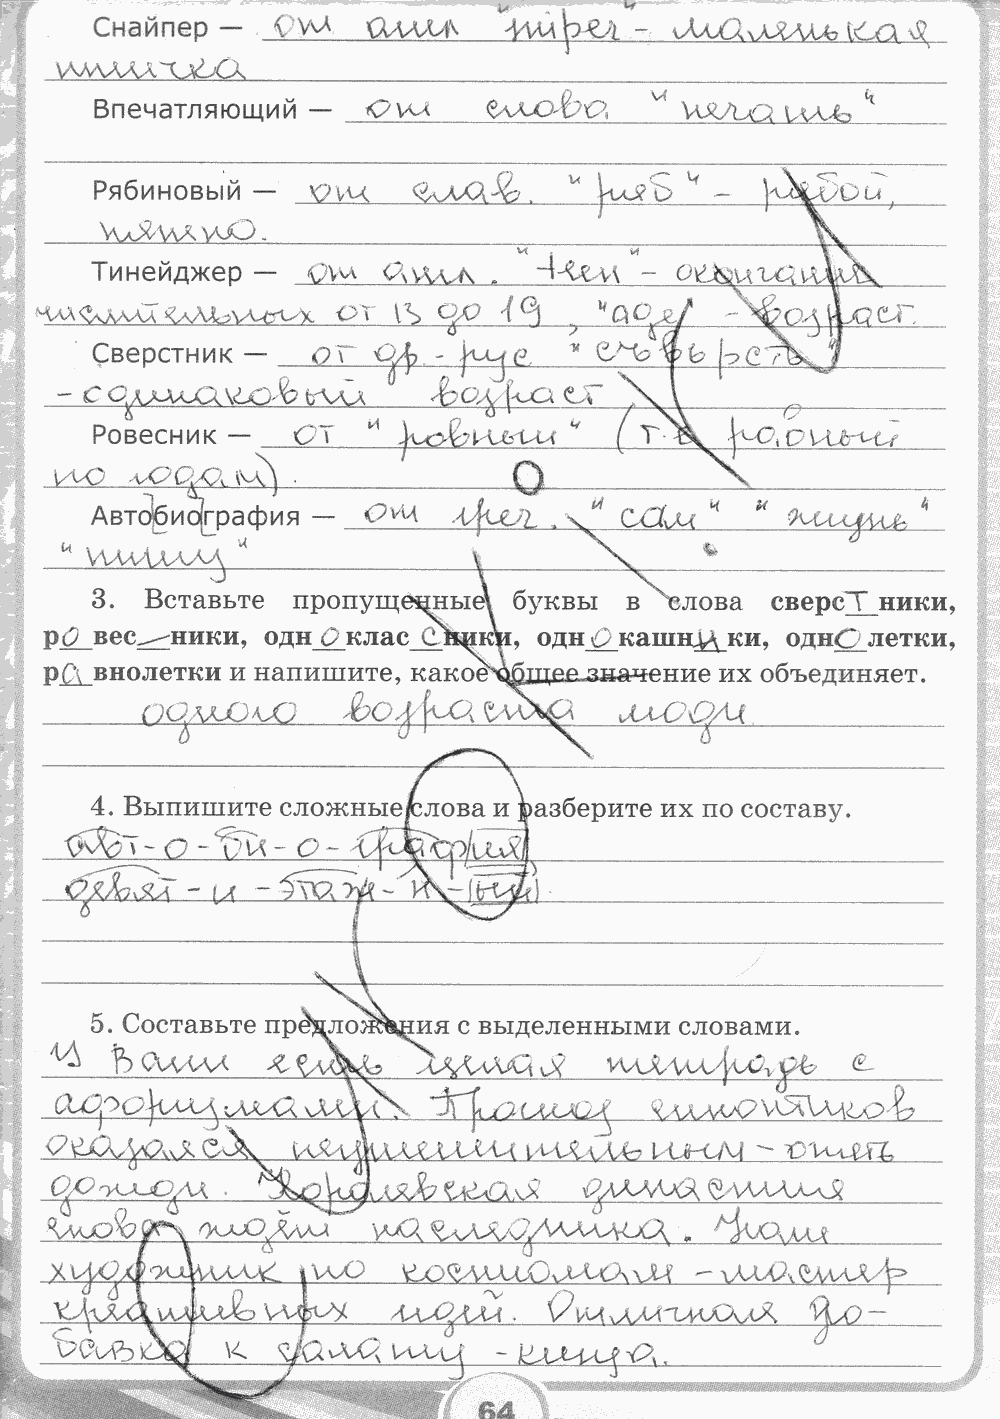 Снайпер — от англ "snipeг" - маленькая
птичка
Впечатляющий — от слова "печать"
Рябиновый — от слав. "ряб" - рябой,
пятно.
Тинейджер — от англ. "teen" - окончание
числительных от 13 до 19, "age" - возраст.
Сверстник — от др.-рус "съвьрсть"
- одинаковый возраст
Ровесник — от "ровный" (т.е. ровный
по годам).
Автобиография — от греч. "сам" "жизнь"
"пишу"
3. Вставьте пропущенные буквы в слова сверстники,
ровесники, одноклассники, однокашники, однолетки,
равнолетки и напишите, какое общее значение их объединяет.
одного возраста люди
4. Выпишите сложные слова и разберите их по составу.
авт-о-би-о-граф(ия),
девят-и-этаж-н-(ый)
5. Составьте предложения с выделенными словами.
У Вани есть целая тетрадь с
афоризмами. Прогноз синоптиков
оказался неутешительным - опять
дожди. Королевская династия
снова ждёт наследника. Наш
художник по костюмам - мастер
креативных идей. Отличная до-
бавка к салату - кинза.
64